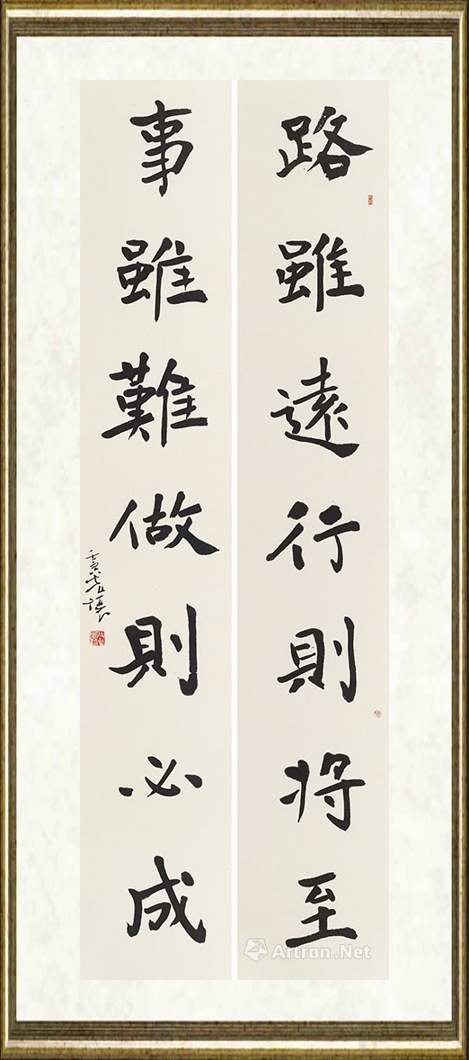 路雖遠行則將至
事雖難做則必成
Artron.Net